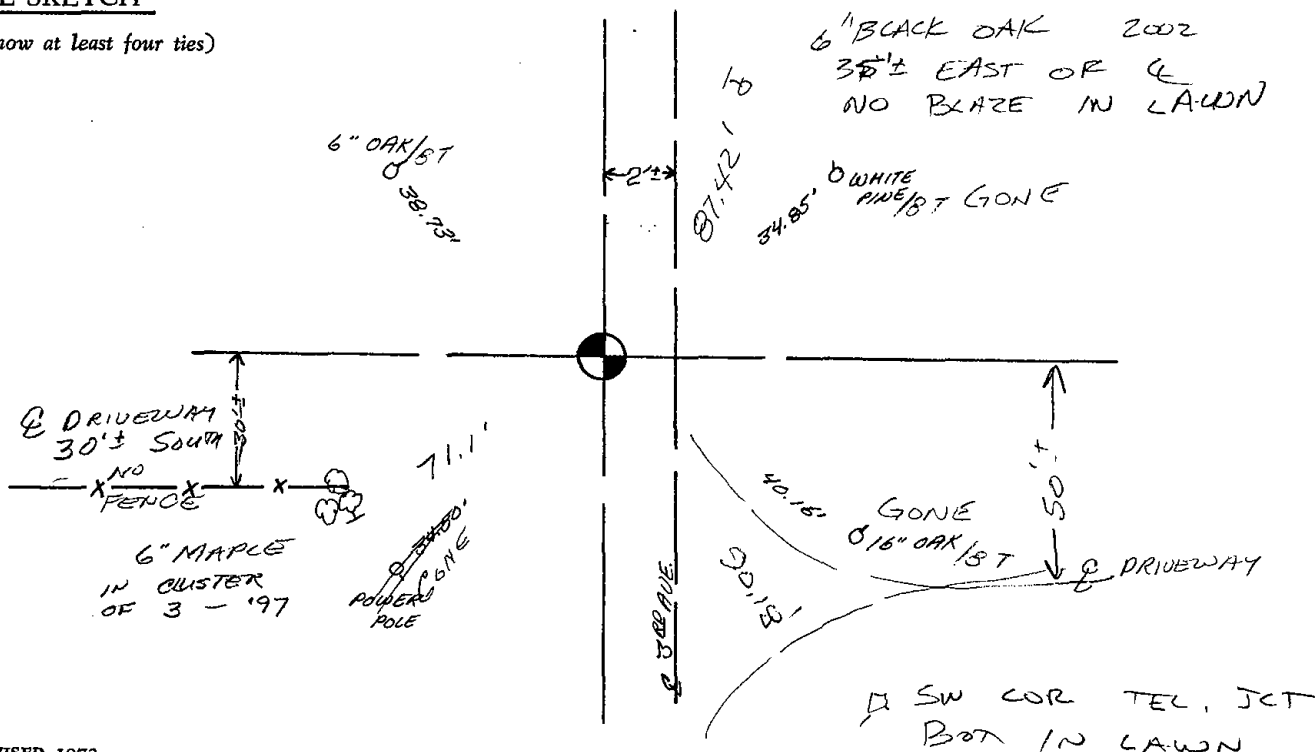 E SKETCH
now at least four ties)
6" BLACK OAK 2002
35'± EAST OF ℄
NO BLAZE IN LAWN
6" OAK/BT
38.73'
2'±
87.42'
34.85'
WHITE
PINE/BT GONE
℄ DRIVEWAY
30'± SOUTH
30'±
NO
FENCE
71.1'
6" MAPLE
IN CLUSTER
OF 3 - '97
GONE
POWER
POLE
℄ 3RD AVE.
40.15'
GONE
16" OAK/BT
50'±
℄ DRIVEWAY
90.18'
SW COR TEL. JCT
BOX IN LAWN